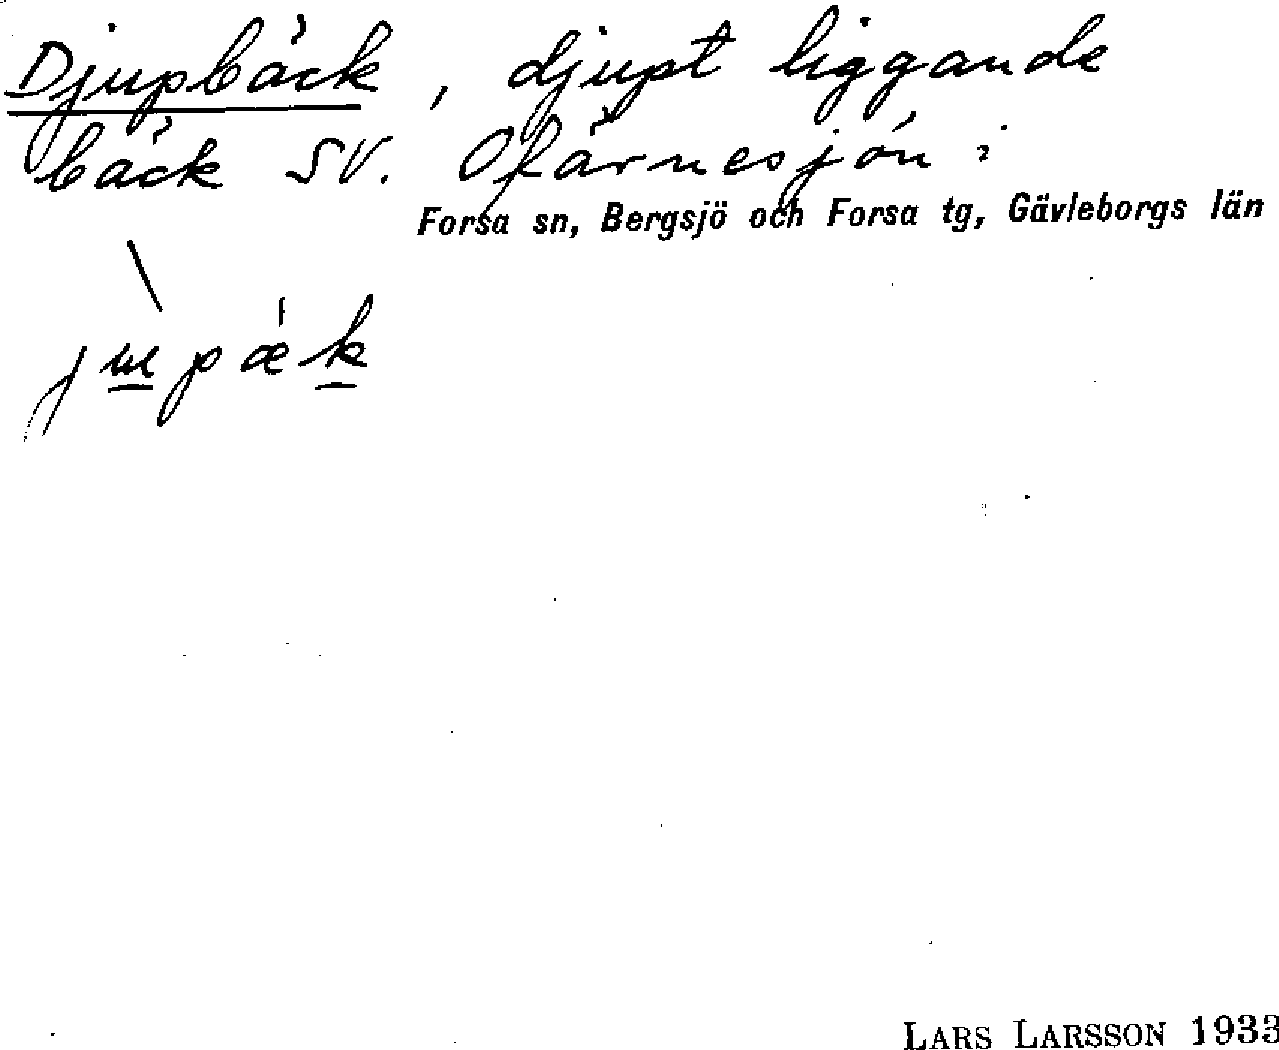 Djupbäck, djupt liggande
bäck SV. Ofärnesjön i
Forsa sn, Bergsjö och Forsa tg, Gävleborgs län
LARS LARSSON 1933